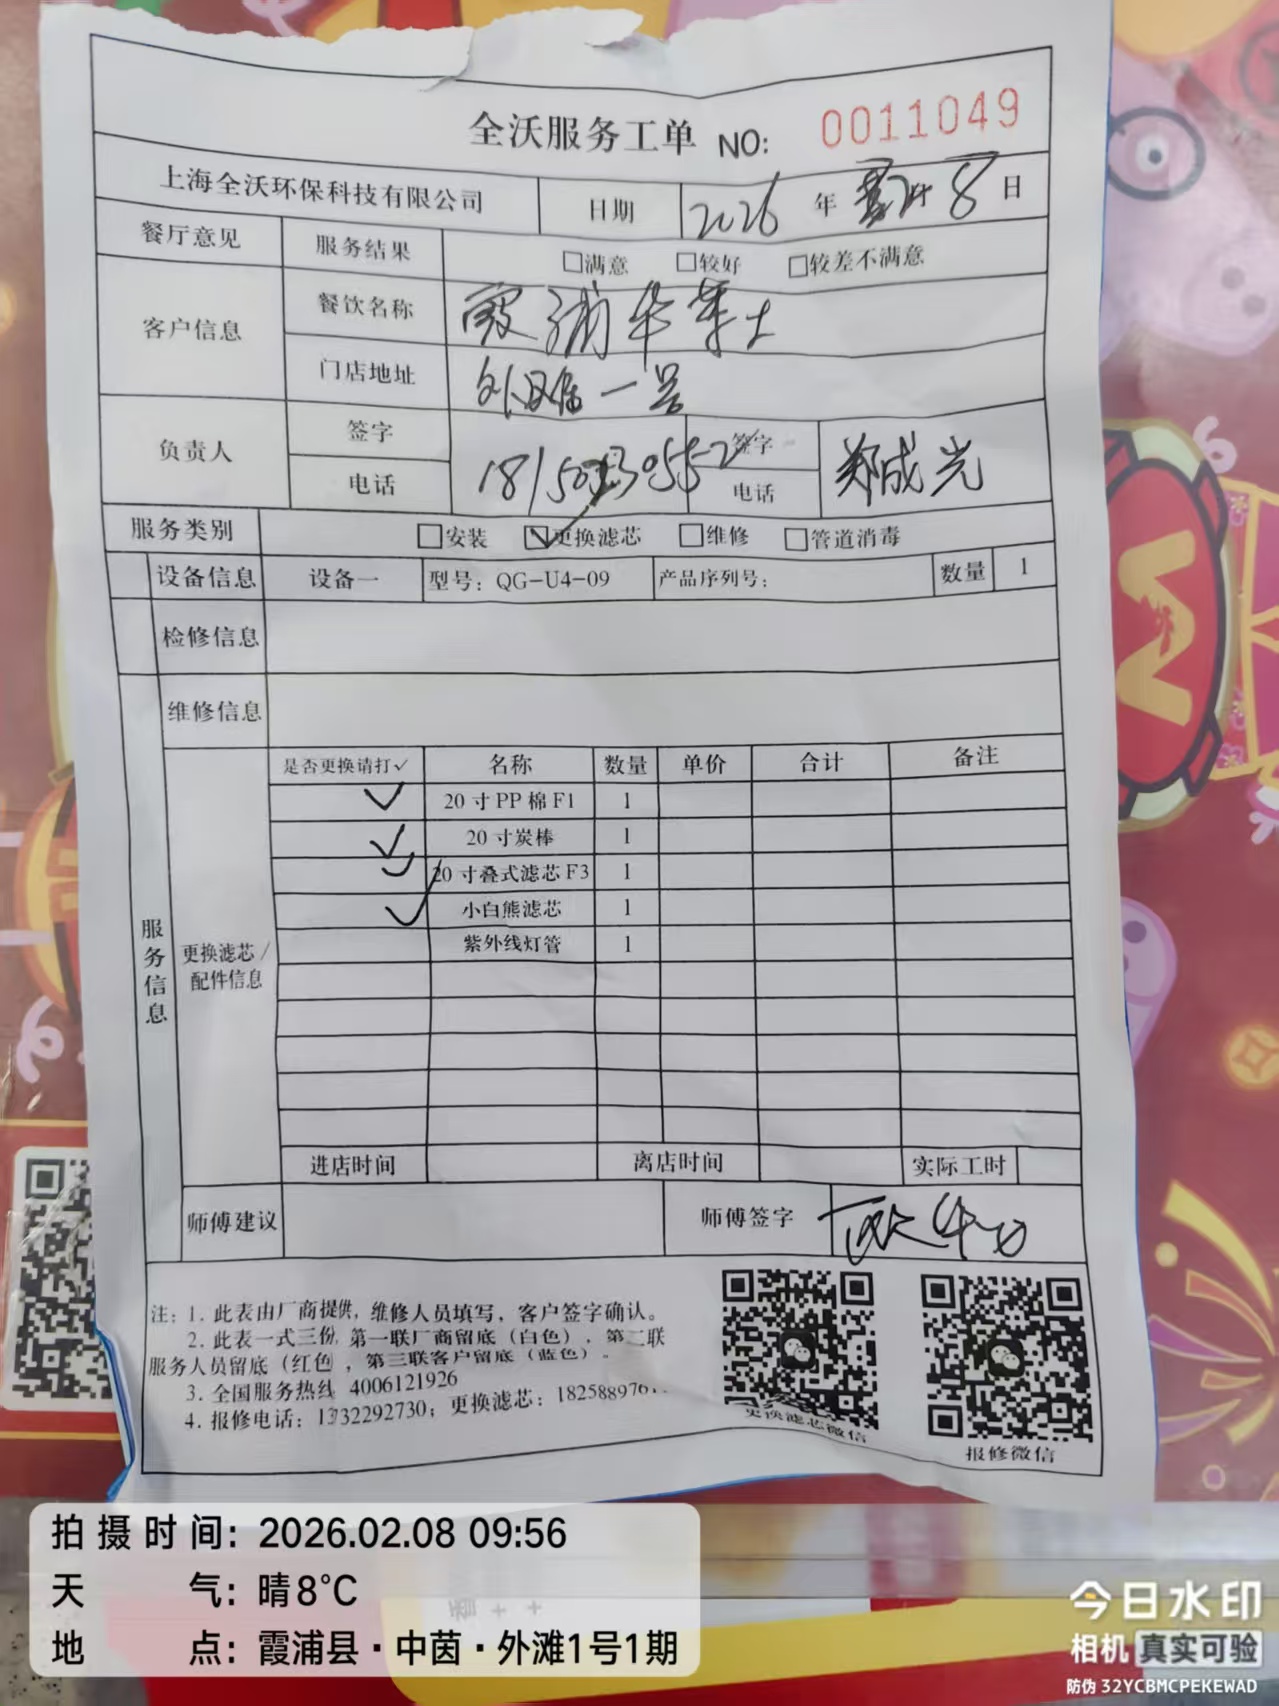 全沃服务工单 NO: 0011049
上海全沃环保科技有限公司 日期 2026 年 8 日
餐厅意见 服务结果 □满意 □较好 □较差不满意
客户信息 餐饮名称 霞浦华莱士
门店地址 外滩一号
负责人 签字 签字 郑成光
电话 电话
服务类别 □安装 ☑更换滤芯 □维修 □管道消毒
设备信息 设备一 型号: QG-U4-09 产品序列号: 数量 1
检修信息
维修信息
服务信息
更换滤芯/配件信息
是否更换请打✓ 名称 数量 单价 合计 备注
✓ 20寸PP棉F1 1
✓ 20寸炭棒 1
✓ 20寸叠式滤芯F3 1
✓ 小白熊滤芯 1
紫外线灯管 1
进店时间 离店时间 实际工时
师傅建议 师傅签字
注: 1. 此表由厂商提供, 维修人员填写, 客户签字确认。
2. 此表一式三份, 第一联厂商留底(白色), 第二联
服务人员留底(红色), 第三联客户留底(蓝色)。
3. 全国服务热线 4006121926
4. 报修电话: 1732292730; 更换滤芯: 182588976
更换滤芯微信
报修微信
拍摄时间: 2026.02.08 09:56
天气: 晴8°C
地点: 霞浦县·中茵·外滩1号1期
今日水印
相机 真实可验
防伪 32YCBMCPEKEWAD